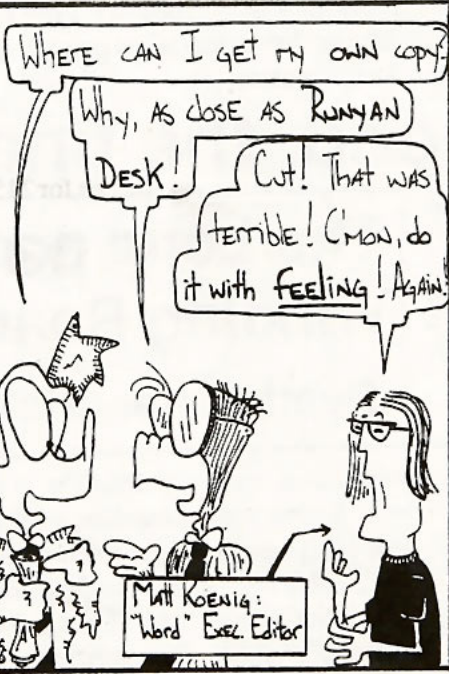 Where can I get my own copy?
Why, as close as Runyan
Desk!
Cut! That was
terrible! C'mon, do
it with feeling! Again!
Matt Koenig:
"Word" Exec. Editor